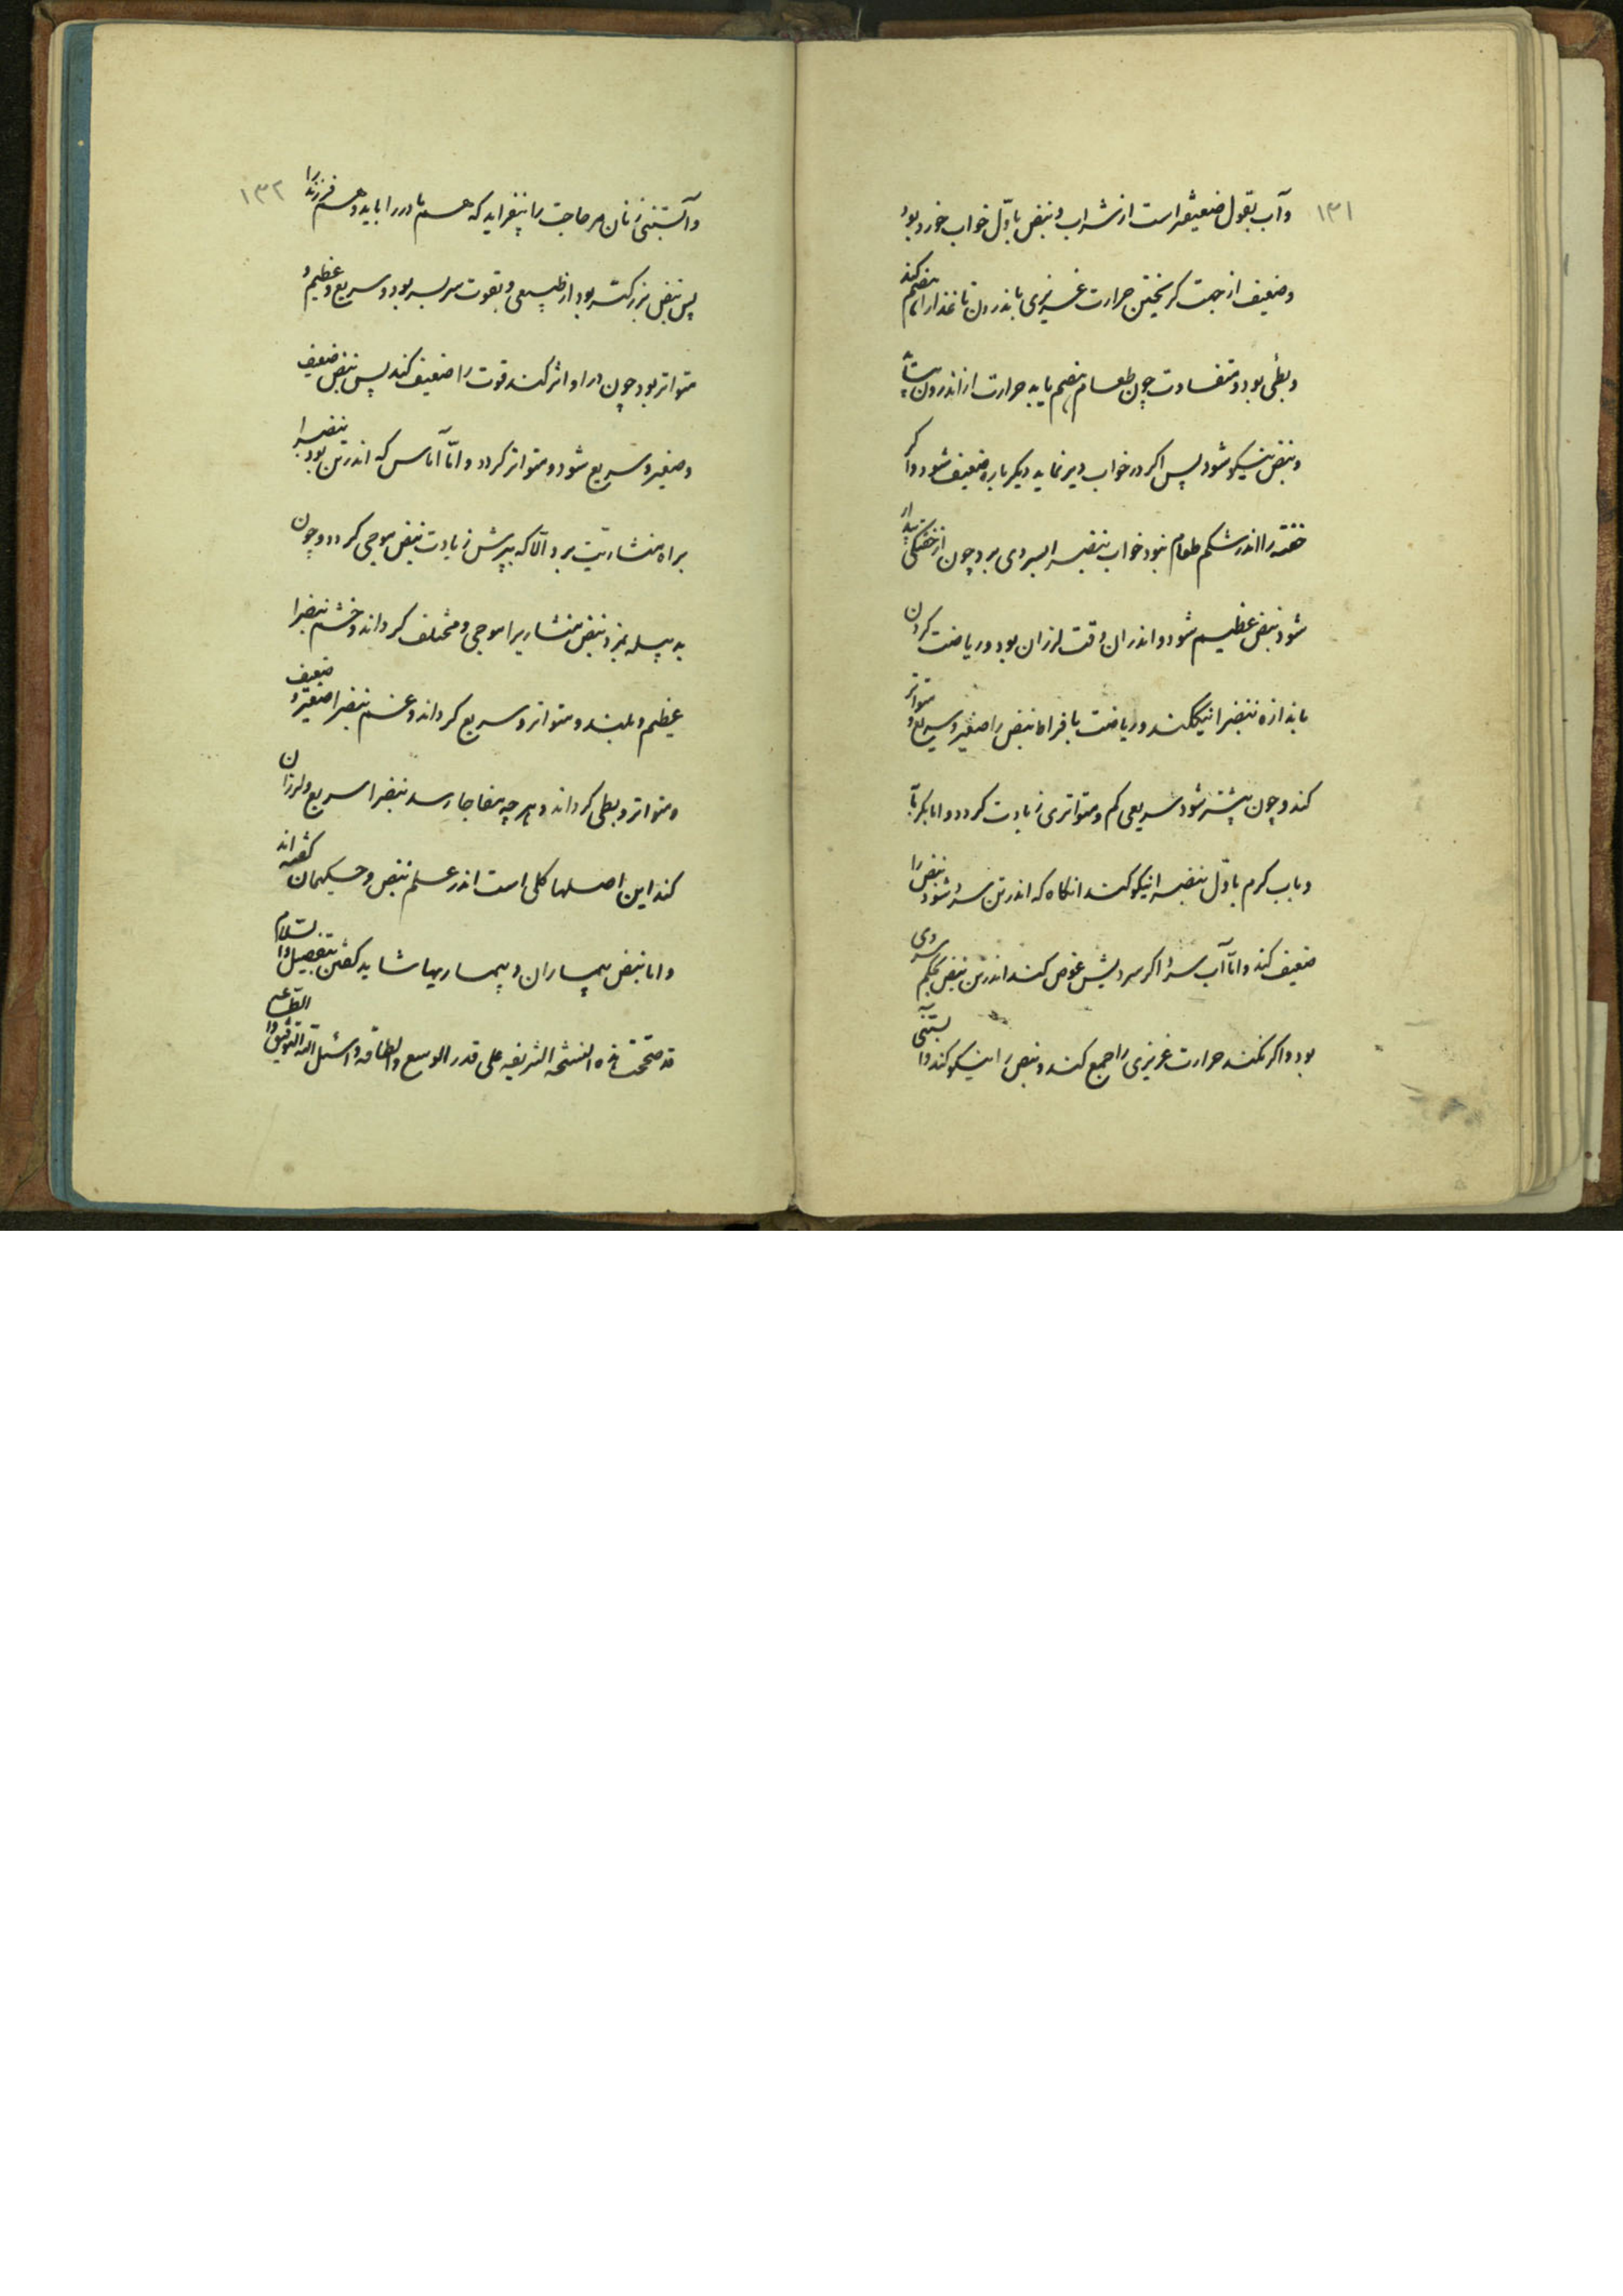 ۱۳۱
وآب بقول ضعیفتر است از شراب و نبض باوّل خواب خورد بود
وضعیف از جهت گریختن حرارت غریزی باندرون تا غذارا هضم کند
وبطی بود ومتفاوت چون طعام هضم یابد حرارت از اندرون
ونبض نیکو شود پس اگر در خواب دیر نماید دیگر باره ضعیف شود واگر
خفته را اندر شکم طعام نبود خواب نبض را بسردی برد چون از خفتگی بیدار
شود نبض عظیم شود و اندران وقت لرزان بود وریاضت کردن
باندازه نبض را نیک کند وریاضت بافراط نبض را صغیر وسریع و متواتر
کند وچون بیشتر شود سریعی کم ومتواتری زیادت کردد واما بکرمابه
وبآب کرم باوّل نبض را نیکو کند انکاه که اندر تن سرد شود نبض را
ضعیف کند وامّا آب سرد اکر سردیش غوص کند اندر تن نبض بحکم سردی
بود واکر نکند حرارت غریزی را جمع کند ونبض را نیکو کند وآبستنی
۱۳۲
وآبستنی زنان مر حاجت را بیفزاید که هم مادر را باید وهم فرزند را
پس نبض بزرکتر بود از طبیعی وبقوت سربسر بود وسریع وعظیم و
متواتر بود چون در او اثر کند قوت را ضعیف کند پس نبض ضعیف
وصغیر وسریع شود ومتواتر کردد وامّا آماس که اندر تن بود نبض را
براه منشاریت برد الّا که بپرش زیادت نبض موجی کردد وچون
به پیله پزد نبض منشاریرا موجی ومختلف کرداند وخشم نبض را
عظیم وبلند ومتواتر وسریع کرداند وغم نبض را صغیر و ضعیف
ومتواتر وبطی کرداند وهرچه مفاجا رسد نبض را سریع ولرزان
کند این اصلها کلی است اندر علم نبض وحکیمان کفته اند
واما نبض بیماران وبیماریها شاید کفتن بتفصیل والسلام
قد صححت هذه النسخه الشریفه علی قدر الوسع والطاقه واسئل الله التوفیق والطاعه